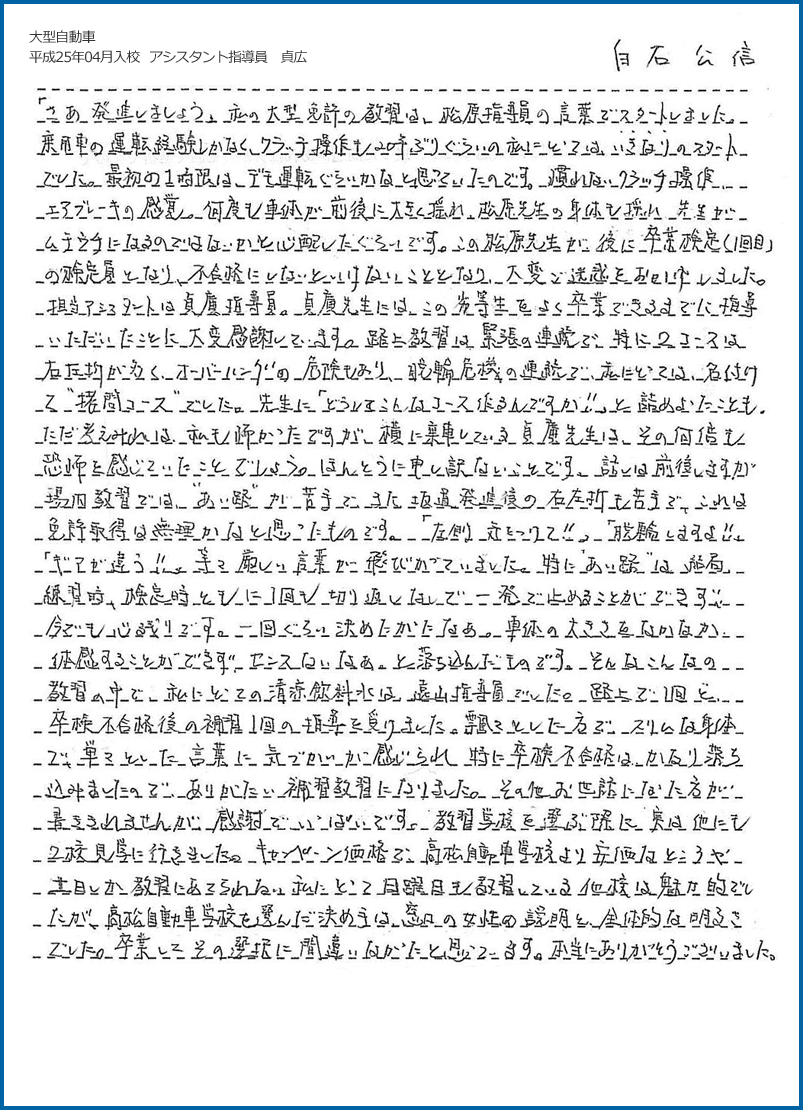 大型自動車
平成25年04月入校 アシスタント指導員 貞広
白石公信
「さあ発進しましょう」、私の大型免許の教習は、松原指導員の言葉でスタートしました。
乗用車の運転経験しかなく、クラッチ操作も20年ぶりぐらいの私にとっては、いきなりのスタート
でした。最初の1時限は、デモ運転ぐらいかなと思っていたのです。慣れないクラッチ操作、
エアブレーキの感覚。何度も車体が前後に大きく揺れ、松原先生の身体も揺れ、先生が
ムチウチになるのではないかと心配したぐらいです。この松原先生が、後に卒業検定(1回目)
の検定員となり、不合格にしないといけないこととなり、大変ご迷惑をお掛けしました。
担当アシスタントは貞廣指導員。貞廣先生には、この劣等生をよく卒業できるまでに指導
いただいたことに大変感謝しています。路上教習は緊張の連続で、特に2コースは
右左折が多く、オーバーハングの危険もあり、脱輪危機の連続で、私にとっては、名付け
て"拷問コース"でした。先生に「どうしてこんなコース作るんですか!!」と詰めよったことも。
ただ考えみれば、私も怖かったですが、横に乗車している貞廣先生は、その何倍も
恐怖を感じていたことでしょう。ほんとうに申し訳ないことです。話しは前後しますが
場内教習では、"あい路"が苦手で、また坂道発進後の右左折も苦手で、これは
免許取得は無理かなと思ったものです。「左側気をつけて!!」、「脱輪しますよ!!」、
「ギアが違う!!」等々厳しい言葉が飛びかっていました。特に"あい路"は結局
練習時、検定時ともに1回も切り返しなしで一発で止めることができず、
今でも心残りです。一回ぐらい決めたかったなあ。車体の大きさをなかなか
体感することができず、センスないなぁ。と落ち込んだものです。そんなこんなの
教習の中で、私にとっての清涼飲料水は、遠山指導員でした。路上で1回と、
卒検不合格後の補習1回の指導を受けました。飄々とした方で、スリムな身体
で、単々とした言葉に気づかいが感じられ、特に卒検不合格は、かなり落ち
込みましたので、ありがたい補習教習になりました。その他お世話になった方が
書ききれませんが、感謝でいっぱいです。教習学校を選ぶ際に、実は他にも
2校見学に行きました。キャンペーン価格で、高松自動車学校より安価なところや
土日しか教習にあてられない私にとって日曜日も教習している他校は魅力的でし
たが、高松自動車学校を選んだ決め手は、窓口の女性の説明と、全体的な明るさ
でした。卒業してその選択に間違いなかったと思っています。本当にありがとうございました。